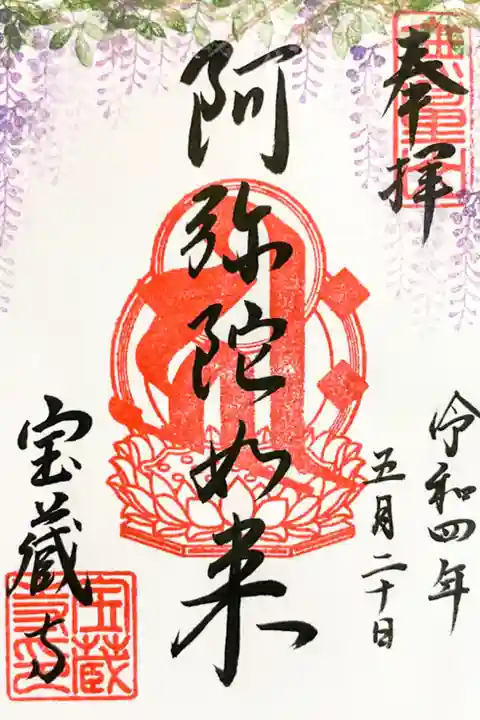 奉拝
令和四年
五月二十日
阿弥陀如来
宝蔵寺